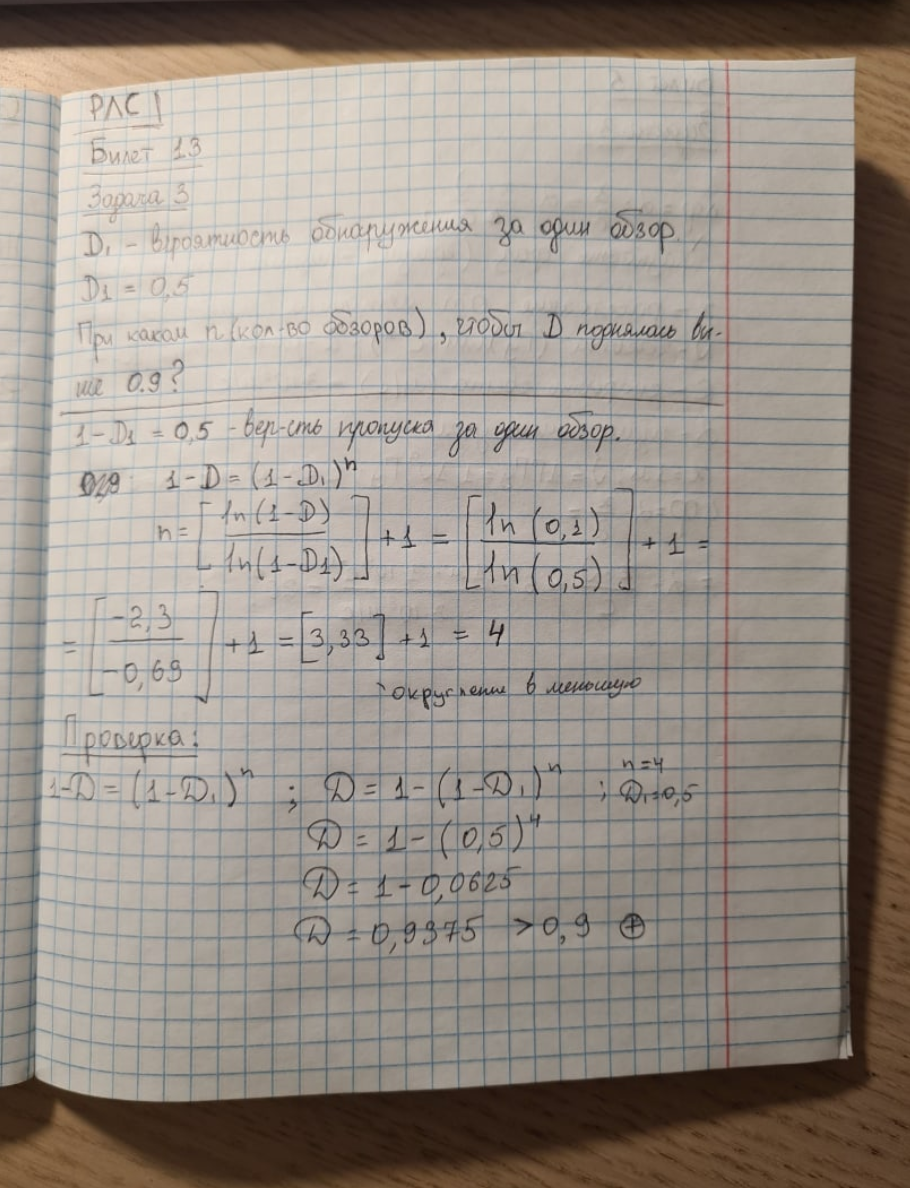 РЛС 1
Билет 13
Задача 3
D₁ - вероятность обнаружения за один обзор.
D1 = 0,5
При каком n (кол-во обзоров), чтобы D поднялась вы-
ше 0.9?
1-D1 = 0,5 - вер-сть пропуска за один обзор.
1-D = (1-D₁)ⁿ
n = [ln(1-D) / ln(1-D1)] + 1 = [ln(0,1) / ln(0,5)] + 1 =
= [-2,3 / -0,69] + 1 = [3,33] + 1 = 4
округление в меньшую
Проверка:
1-D = (1-D₁)ⁿ ; D = 1-(1-D₁)ⁿ ; n=4 D₁=0,5
D = 1-(0,5)⁴
D = 1-0,0625
D = 0,9375 > 0,9 ⊕